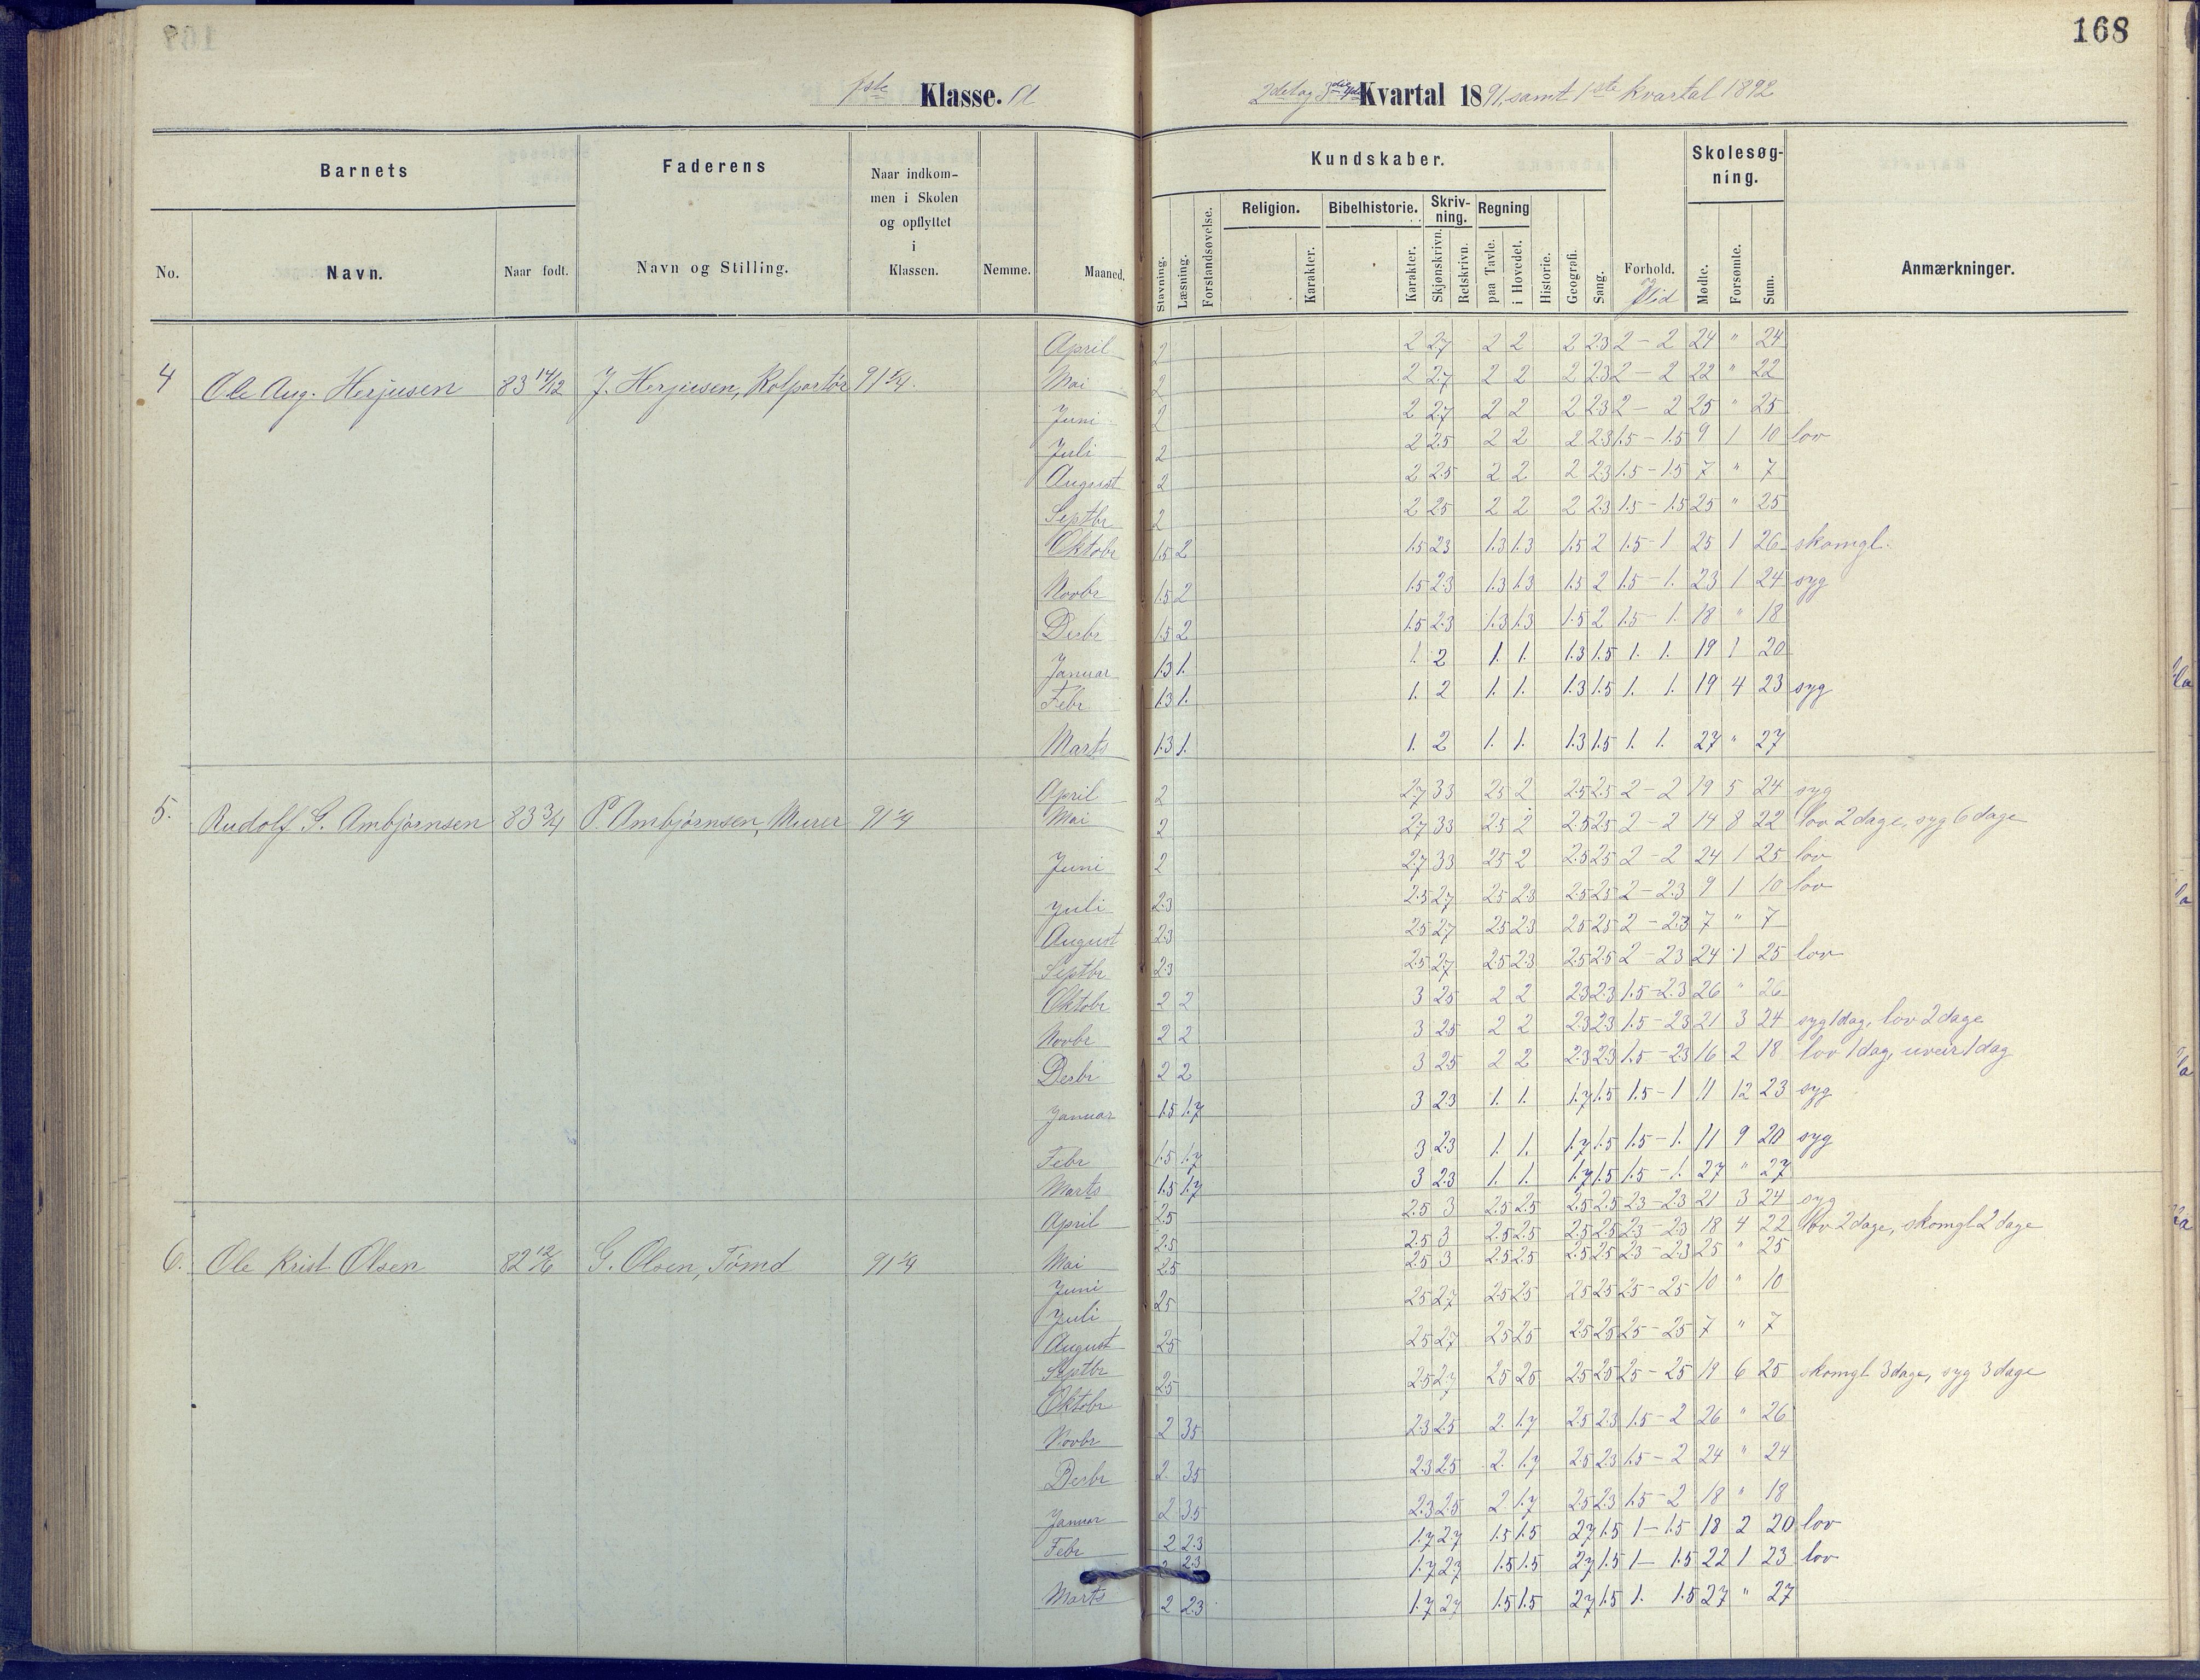 168
1ste Klasse. A
2det og 3die Kvartal 1891, samt 1ste kvartal 1892
Barnets
Faderens
Naar indkommen i Skolen og opflyttet i Klassen.
Nemme.
Maaned.
Kundskaber.
Skolesøgning.
No.
Navn.
Naar født.
Navn og Stilling.
Stavning.
Læsning.
Forstandsøvelse.
Religion.
Karakter.
Bibelhistorie.
Karakter.
Skrivning.
Skjønskrivn.
Retskrivn.
Regning
paa Tavle.
i Hovedet.
Historie.
Geografi.
Sang.
Forhold. og Flid
Mødte.
Forsømte.
Sum.
Anmærkninger.
4 Ole Aug. Herjusen 83 14/12 J. Herjusen, Kolportør 91 1/4
April 2 2 2.7 2 2 2 2.3 2 - 2 24 " 24
Mai 2 2 2.7 2 2 2 2.3 2 - 2 22 " 22
Juni 2 2 2.7 2 2 2 2.3 2 - 2 25 " 25
Juli 2 2 2.5 2 2 2 2.3 1.5 - 1.5 9 1 10 lov
August 2 2 2.5 2 2 2 2.3 1.5 - 1.5 7 " 7
Septbr 2 2 2.5 2 2 2 2.3 1.5 - 1.5 25 " 25
Oktobr 1.5 2 1.5 2.3 1.3 1.3 1.5 2 1.5 - 1 25 1 26 skomgl.
Novbr 1.5 2 1.5 2.3 1.3 1.3 1.5 2 1.5 - 1. 23 1 24 syg
Desbr 1.5 2 1.5 2.3 1.3 1.3 1.5 2 1.5 - 1. 18 " 18
Januar 1.3 1. 1. 2 1. 1. 1.3 1.5 1. 1. 19 1 20
Febr 1.3 1. 1. 2 1. 1. 1.3 1.5 1. 1. 19 4 23 syg
Marts 1.3 1. 1. 2 1. 1. 1.3 1.5 1. 1. 27 " 27
5. Rudolf G. Ambjørnsen 83 3/4 P. Ambjørnsen, Murer 91 1/4
April 2 2.7 3.3 2.5 2 2.5 2.5 2 - 2 19 5 24 syg
Mai 2 2.7 3.3 2.5 2 2.5 2.5 2 - 2 14 8 22 lov 2 dage, syg 6 dage
Juni 2 2.7 3.3 2.5 2 2.5 2.5 2 - 2 24 1 25 lov
Juli 2.3 2.5 2.7 2.5 2.3 2.5 2.5 2 - 2.3 9 1 10 lov
August 2.3 2.5 2.7 2.5 2.3 2.5 2.5 2 - 2.3 7 " 7
Septbr 2.3 2.5 2.7 2.5 2.3 2.5 2.5 2 - 2.3 24 1 25 lov
Oktobr 2 2 3 2.5 2 2 2.3 2.3 1.5 - 2.3 26 " 26
Novbr 2 2 3 2.5 2 2 2.3 2.3 1.5 - 2.3 21 3 24 syg 1 dag, lov 2 dage
Desbr 2 2 3 2.5 2 2 2.3 2.3 1.5 - 2.3 16 2 18 lov 1 dag, uveir 1 dag
Januar 1.5 1.7 3 2.3 1. 1. 1.7 1.5 1.5 - 1 11 12 23 syg
Febr 1.5 1.7 3 2.3 1. 1. 1.7 1.5 1.5 - 1. 11 9 20 syg
Marts 1.5 1.7 3 2.3 1. 1. 1.7 1.5 1.5 - 1. 27 " 27
6. Ole Krist. Olsen 82 12/6 G. Olsen, Tømd 91 1/4
April 2.5 2.5 3 2.5 2.5 2.5 2.5 2.3 - 2.3 21 3 24 syg
Mai 2.5 2.5 3 2.5 2.5 2.5 2.5 2.3 - 2.3 18 4 22 lov 2 dage, skomgl 2 dage
Juni 2.5 2.5 3 2.5 2.5 2.5 2.5 2.3 - 2.3 25 " 25
Juli 2.5 2.5 2.7 2.5 2.5 2.5 2.5 2.5 - 2.5 10 " 10
August 2.5 2.5 2.7 2.5 2.5 2.5 2.5 2.5 - 2.5 7 " 7
Septbr 2.5 2.5 2.7 2.5 2.5 2.5 2.5 2.5 - 2.5 19 6 25 skomgl. 3 dage, syg 3 dage
Oktobr 2 3.5 2.3 2.5 2. 1.7 2.5 2.3 1.5 - 2 26 " 26
Novbr 2. 3.5 2.3 2.5 2. 1.7 2.5 2.3 1.5 - 2 24 " 24
Desbr 2 3.5 2.3 2.5 2 1.7 2.5 2.3 1.5 - 2 18 " 18
Januar 2 2.3 1.7 2.7 1.5 1.5 2.7 1.5 1 - 1.5 18 2 20 lov
Febr 2 2.3 1.7 2.7 1.5 1.5 2.7 1.5 1 - 1.5 22 1 23 lov
Marts 2 2.3 1.7 2.7 1.5 1.5 2.7 1.5 1. 1.5 27 " 27